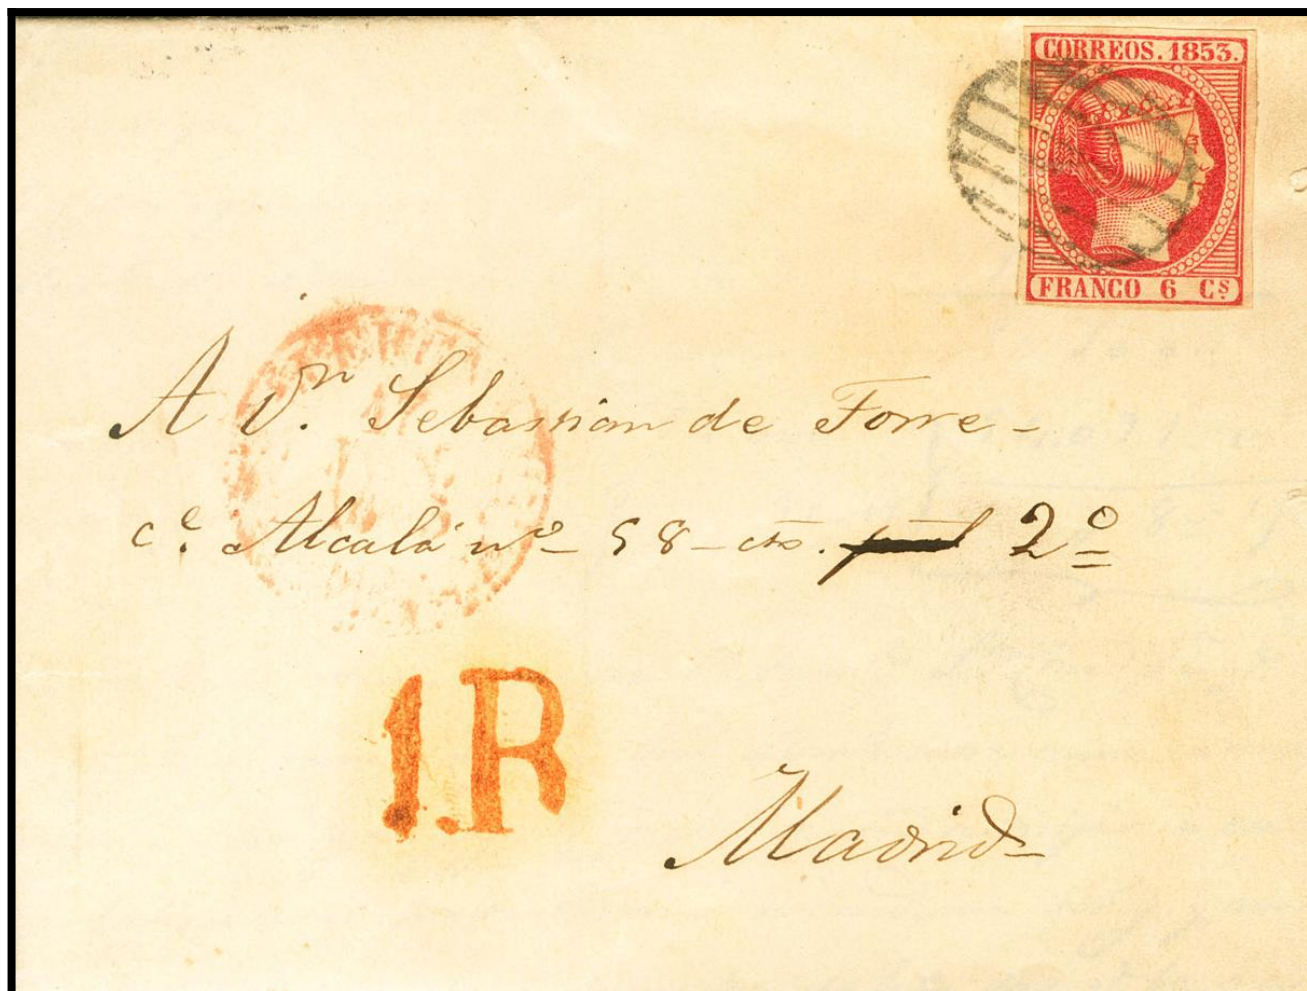 CORREOS. 1853.
FRANCO 6 Cs.
A Dn. Sebastian de Torre -
ce. Alcalá no - 58 - cto. 2o
1.R
Madrid -